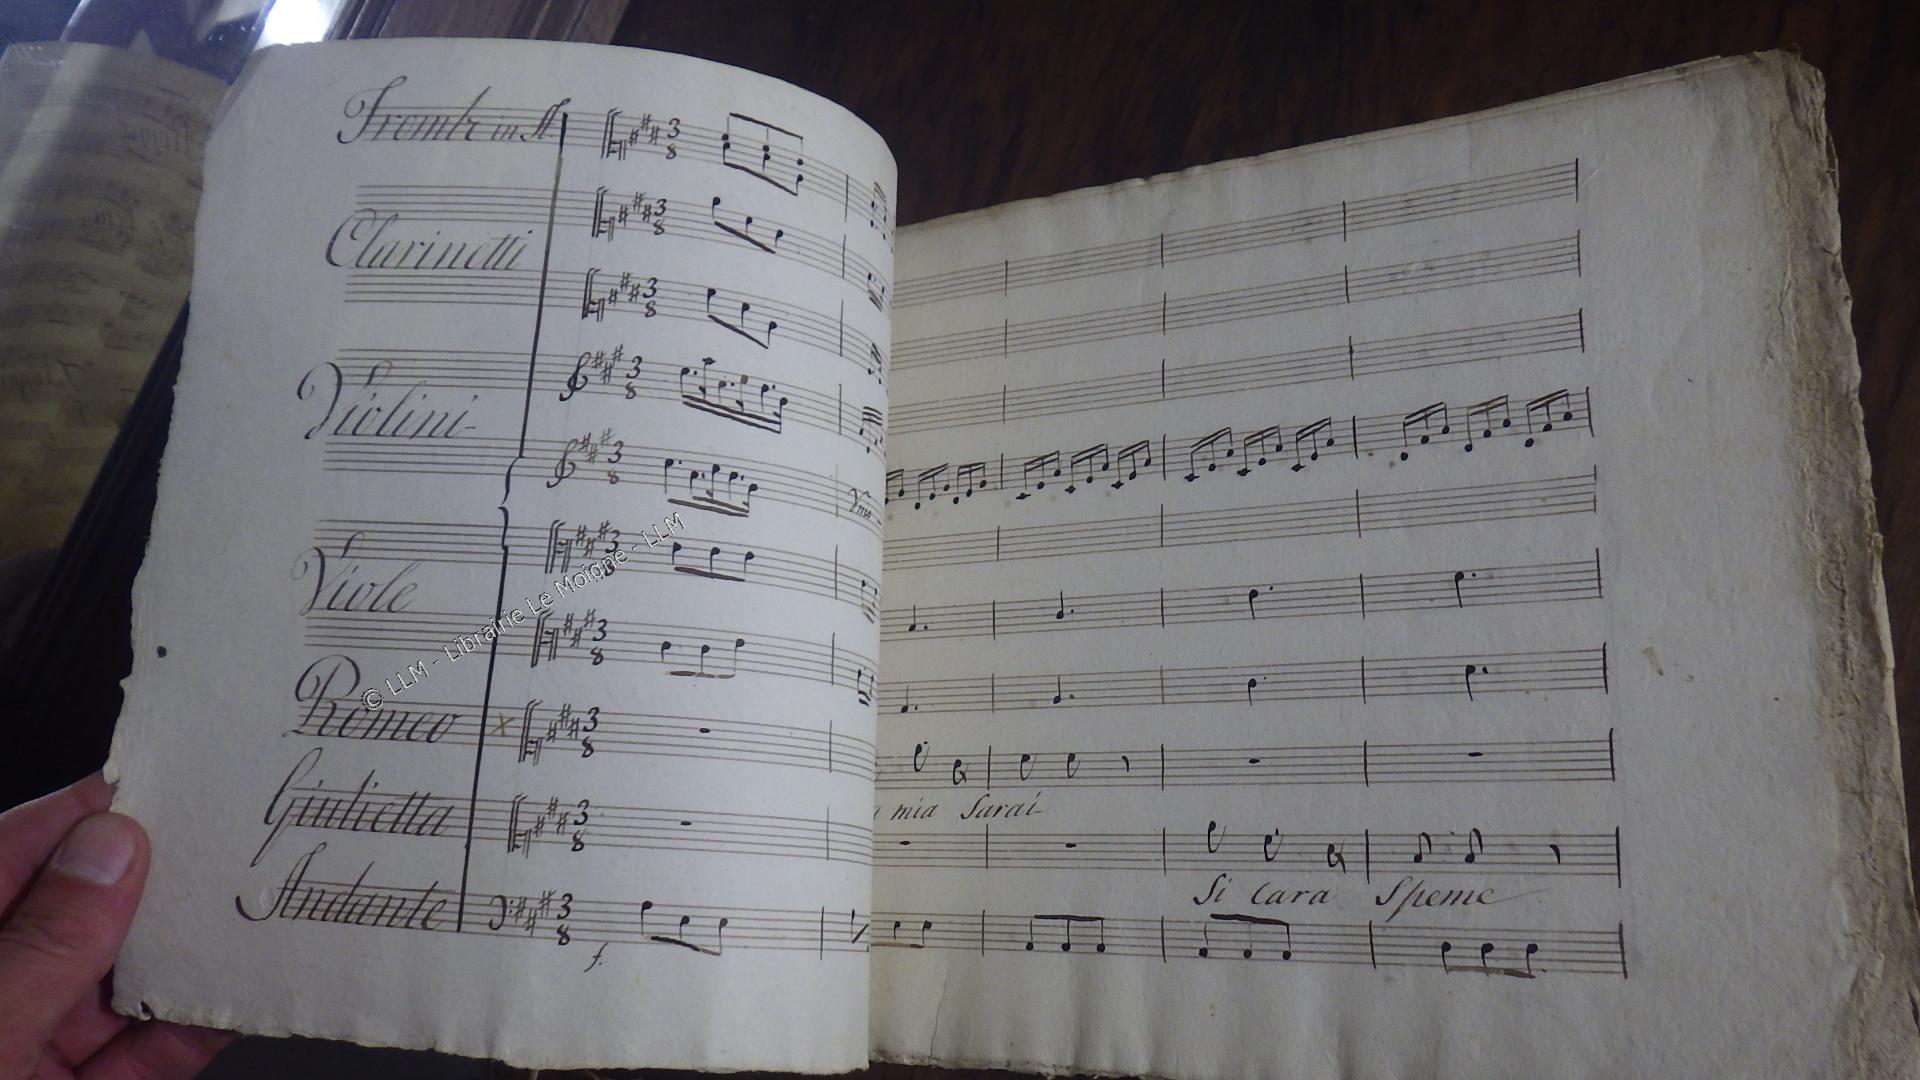 Trombe in A
Clarinetti
Violini
Viole
Romeo
Giulietta
Andante
f.
Vmo
mia Sarai
Si Cara Speme
© LLM - Librairie Le Moigne - LLM